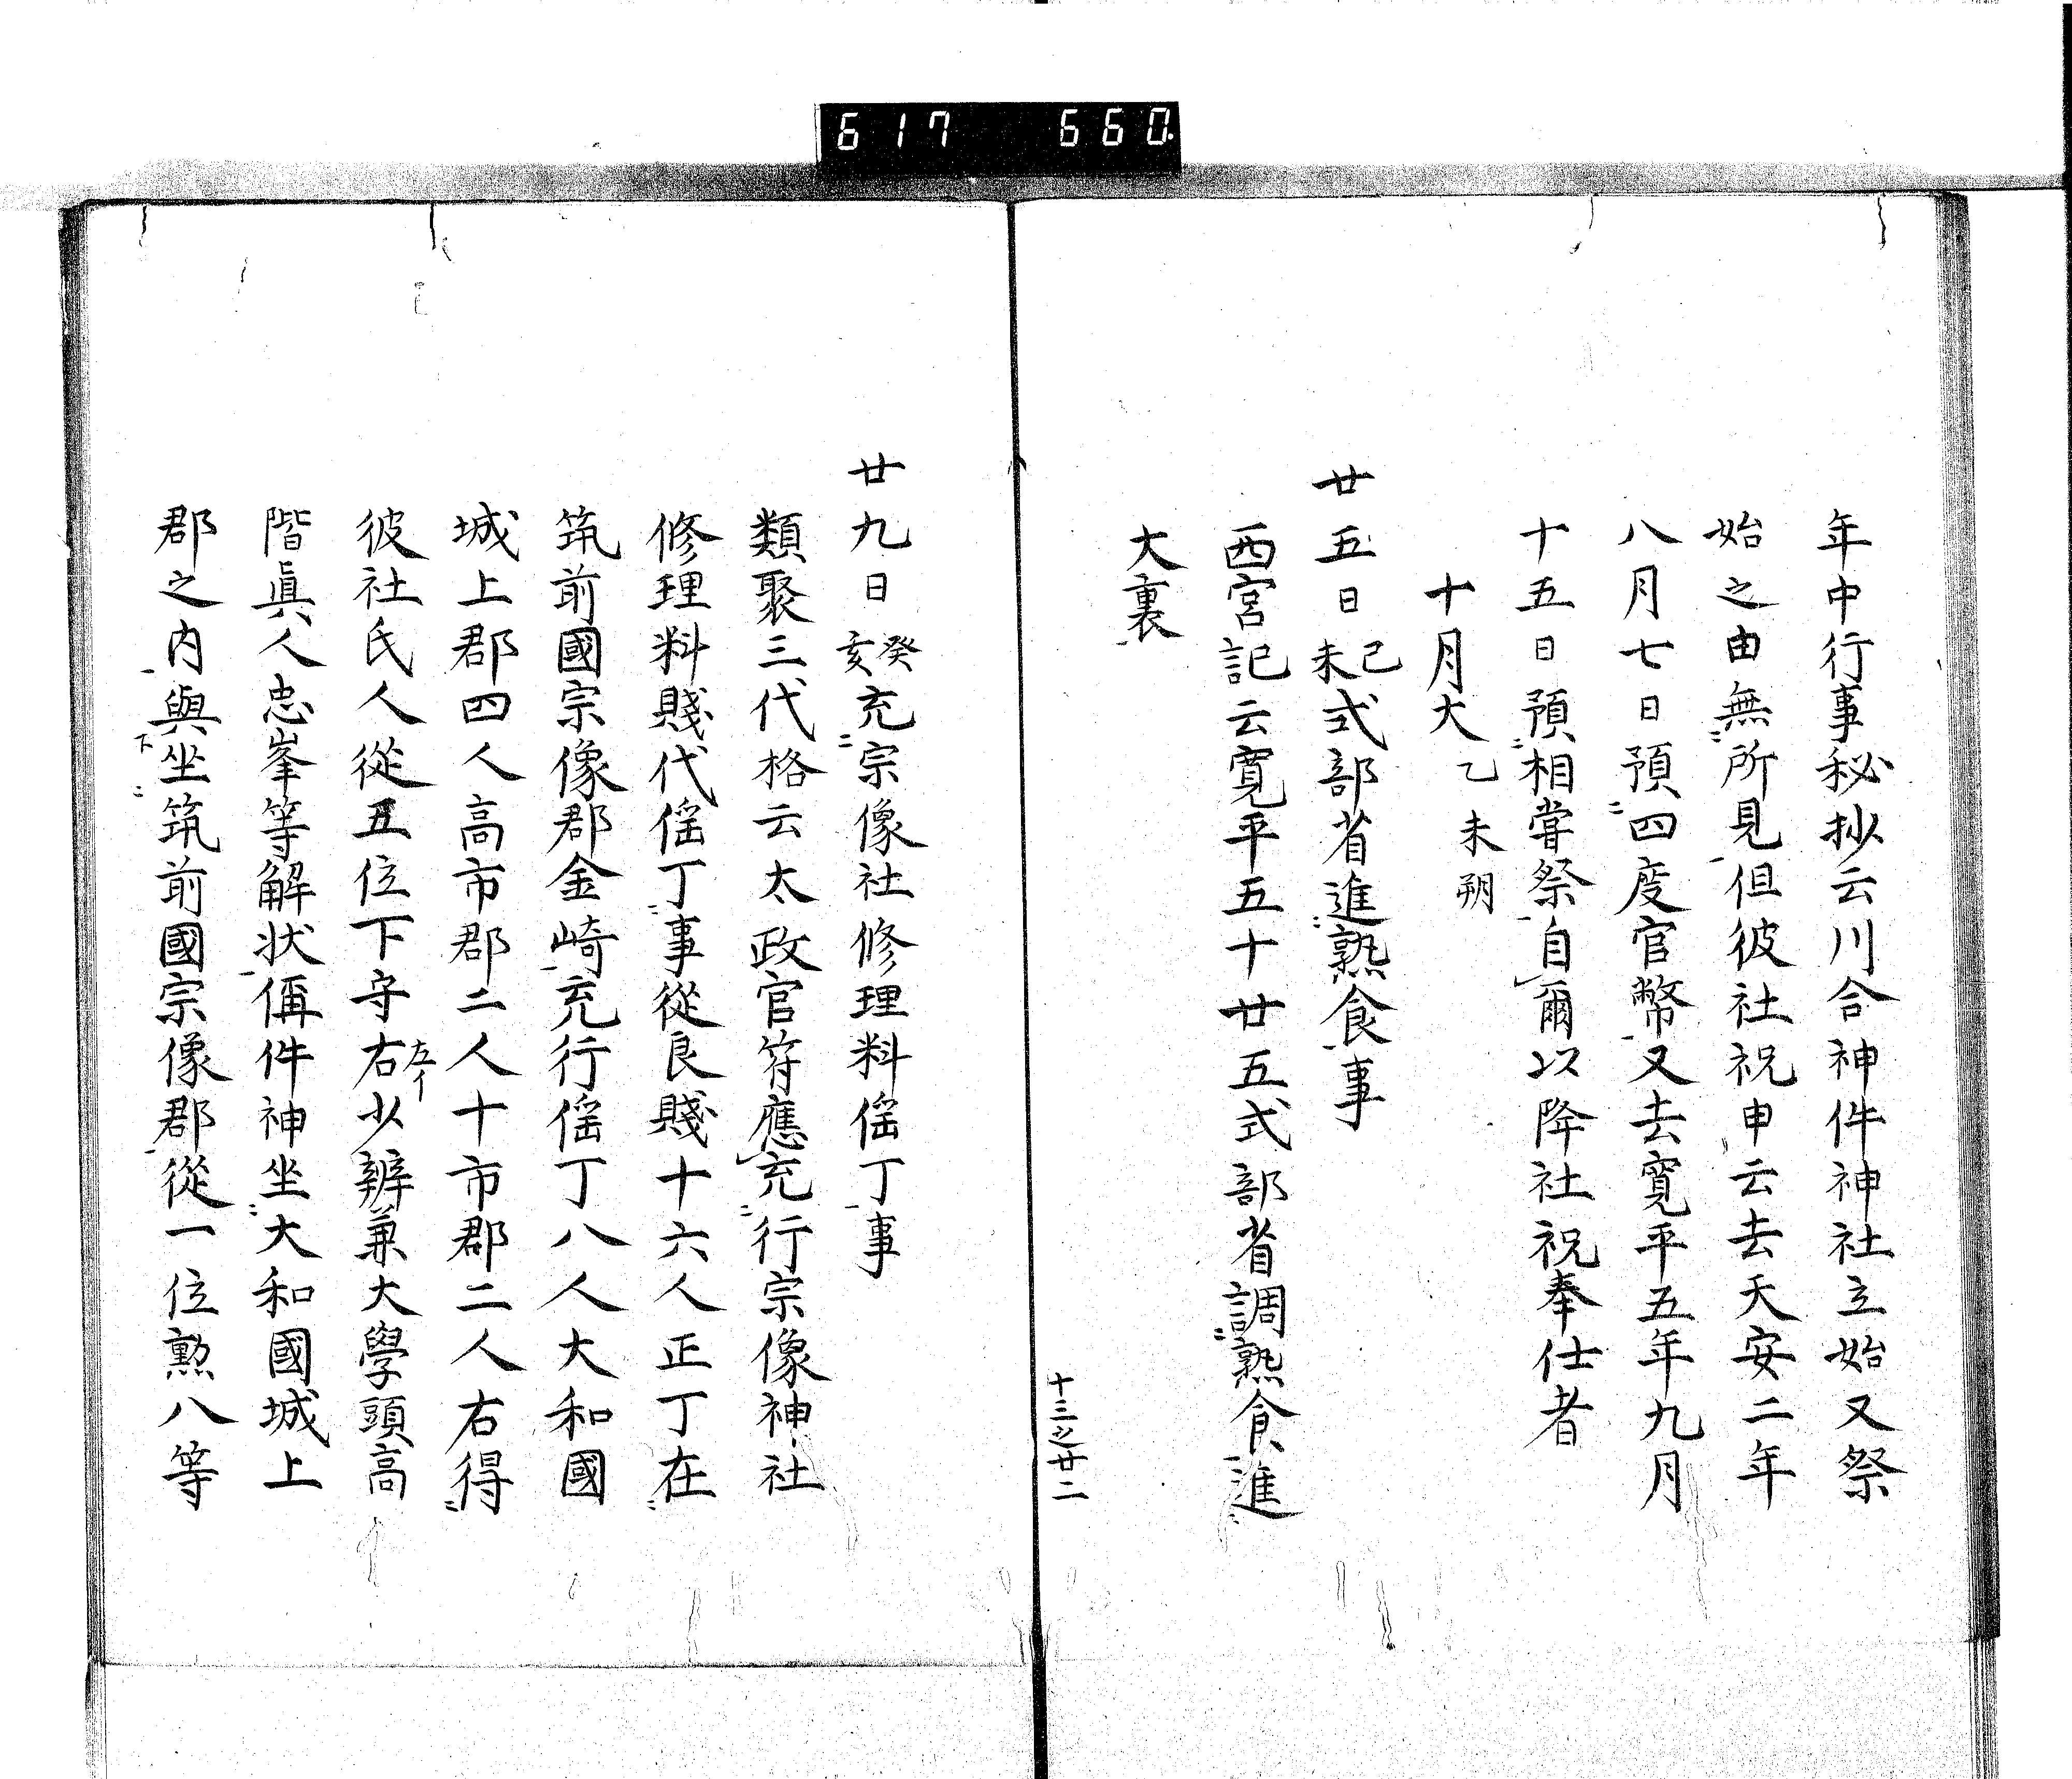 617 660
年中行事秘抄云川合神件神社立始又祭
始之由無所見但彼社祝申云去天安二年
八月七日預四度官幣又去寛平五年九月
十五日預相甞祭自爾以降社祝奉仕者
十月大乙未朔
廿五日己未式部省進熟食事
西宮記云寛平五十廿五式部省調熟食進
大裏
十三之廿二
廿九日癸亥充宗像社修理料傜丁事
類聚三代格云太政官符應充行宗像神社
修理料賤代傜丁事從良賤十六人正丁在
筑前國宗像郡金崎充行傜丁八人大和國
城上郡四人高市郡二人十市郡二人右得
彼社氏人從五位下守右左イ少辨兼大學頭高
階眞人忠峯等解状偁件神坐大和國城上
郡之内與坐筑前國宗像郡從一位勲八等